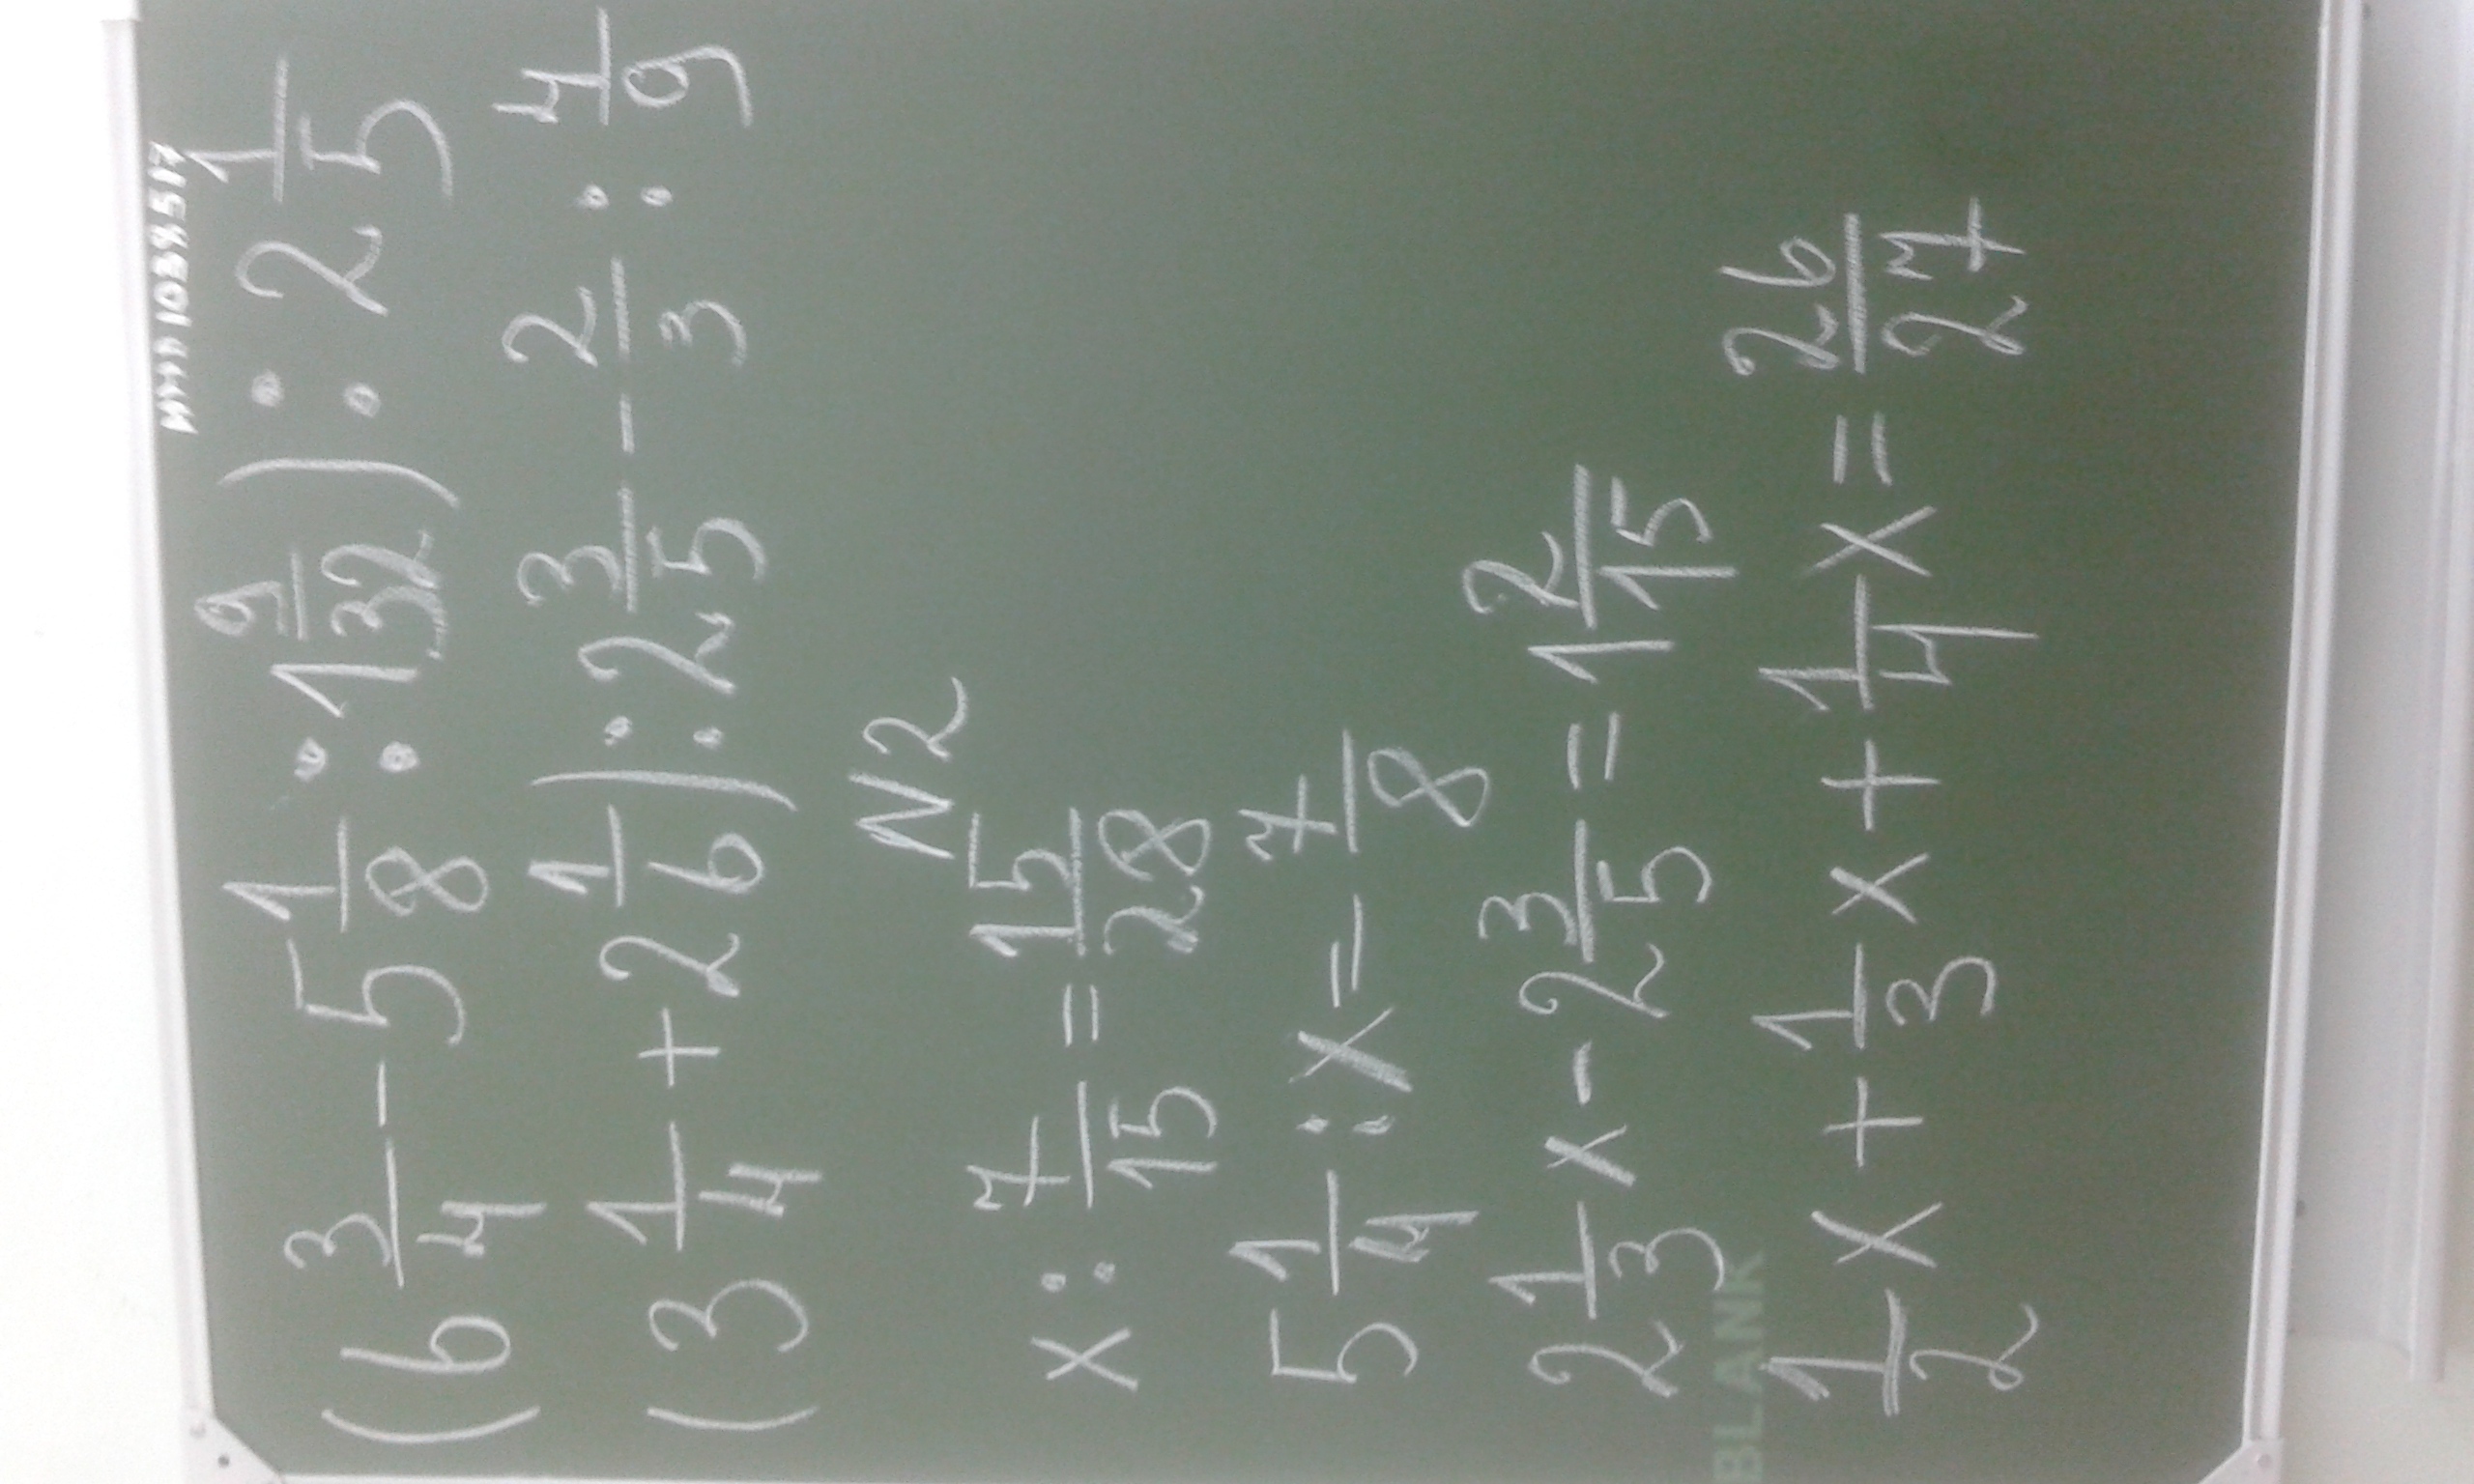 (6 3/4 - 5 1/8 : 1 9/32) : 2 1/5
(3 1/4 + 2 1/6) : 2 3/5 - 2/3 : 4/9
N2
x : 7/15 = 15/28
5 1/4 : x = 7/8
2 1/3 x - 2 3/5 = 1 2/15
1/2 x + 1/3 x + 1/4 x = 26/27
BLANK